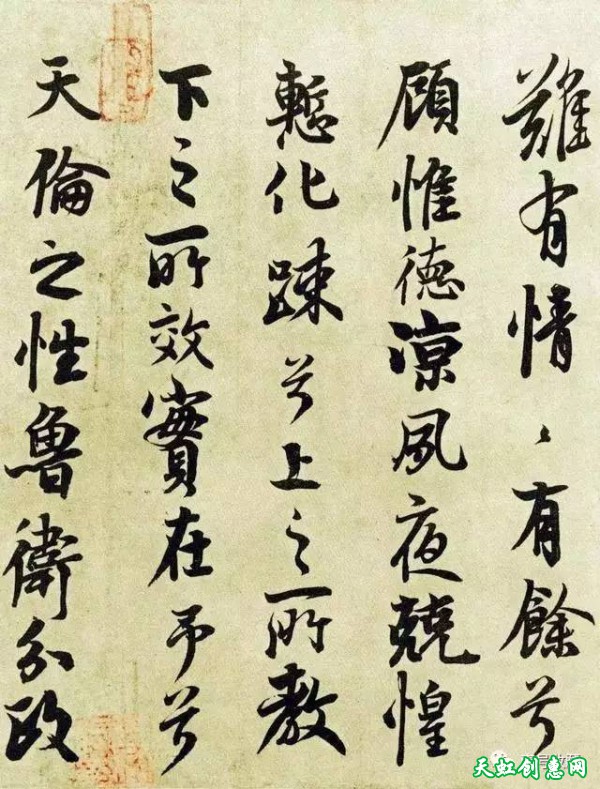 難有情〻有餘兮
顧惟德涼夙夜兢惶
慙化踈兮上之所教
下之所效實在予兮
天倫之性魯衛分政
天虹创惠网